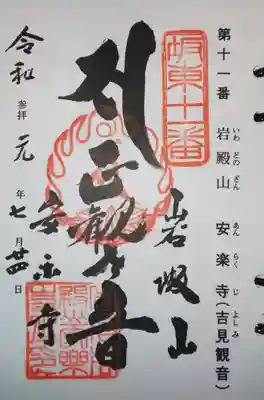 第十一番 岩殿山 安楽寺(吉見観音)
いわ どの ざん あん らく じ よしみ
坂東十一番
岩殿山
正観世音
安楽寺
令和元年七月廿四日
参拝